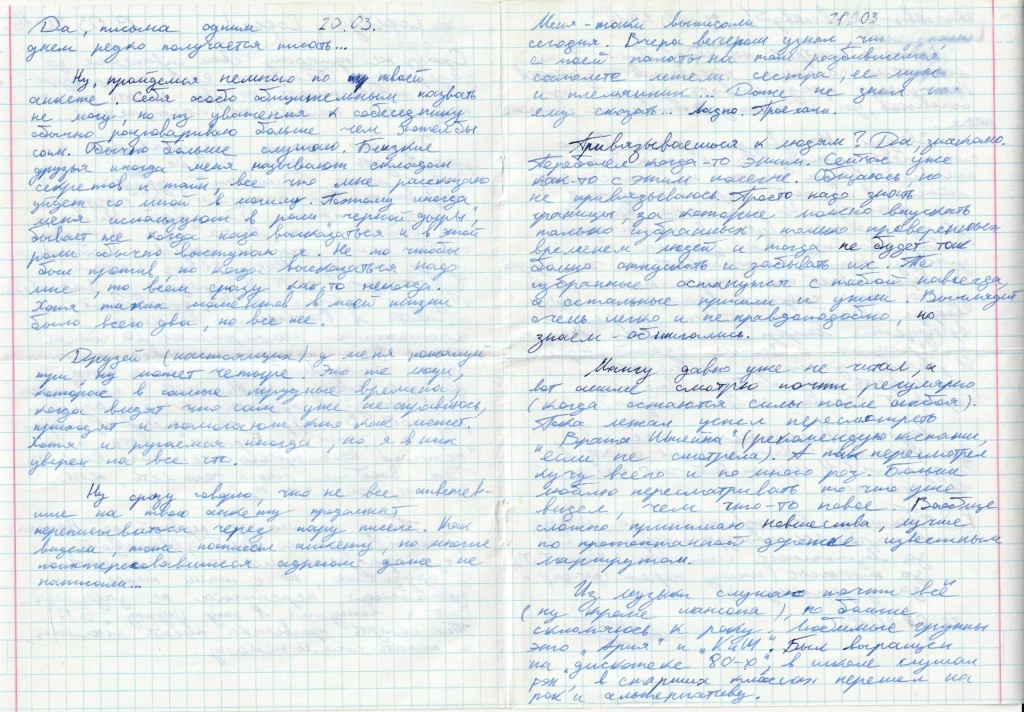 Да, письма одним 20.03.
днем редко получается писать...
Ну, пройдемся немного по твоей
анкете. Себя особо общительным назвать
не могу, но из уважения к собеседнику
обычно разговариваю больше чем хотел бы
сам. Обычно больше слушаю. Близкие
друзья иногда меня называют складом
секретов и тайн, все что мне рассказано
уйдет со мной в могилу. Поэтому иногда
меня используют в роли "черной дыры",
бывает же когда надо высказаться и в этой
роли обычно выступаю я. Не то чтобы
был против, но когда высказаться надо
мне, то всем сразу как-то некогда.
Хотя таких моментов в моей жизни
было всего два, но все же.
Друзей (настоящих) у меня пожалуй
три, ну может четыре. Это те люди,
которые в самые трудные времена,
когда видят что сам уже не справляюсь,
приходят и помогают кто как может.
Хотя и ругаемся иногда, но я в них
уверен на все сто.
Ну сразу говорю, что не все ответив-
шие на твою анкету продолжат
переписываться через пару писем. Как
видела, тоже писал анкету, но многие
поинтересовавшиеся адресом даже не
написали...
Меня-таки выписали 21.03
сегодня. Вчера вечером узнал, что
с моей палаты на том разбившемся
самолете летели сестра, ее муж
и племянник... Даже не знал что
ему сказать... Ладно. Проехали.
Привязываешься к людям? Да, знакомо.
Переболел когда-то этим. Сейчас уже
как-то с этим полегче. Общаюсь но
не привязываюсь. Просто надо знать
границы, за которые можно впускать
только избранных, только проверенных
временем людей и тогда не будет так
больно отпускать и забывать их. Те
избранные останутся с тобой навсегда,
а остальные пришли и ушли. Выглядит
очень легко и не правдоподобно, но
знаем - обжигались.
Мангу давно уже не читал, а
вот аниме смотрю почти регулярно
(когда остаются силы после).
Пока лежал успел пересмотреть
"Врата Штейна" (рекомендую кстати,
если не смотрела). А так пересмотрел
кучу всего и по много раз. Больше
люблю пересматривать то что уже
видел, чем что-то новое. Вообще
сложно принимаю новшества, лучше
по протоптанной дорожке известным
маршрутом.
Из музыки слушаю почти всё
(ну кроме шансона), но больше
склоняюсь к року. Любимые группы
это "Ария" и "КиШ". Был выращен
на "дискотеке 80-х", в школе слушал
рэп, в старших классах перешел на
рок и альтернативу.